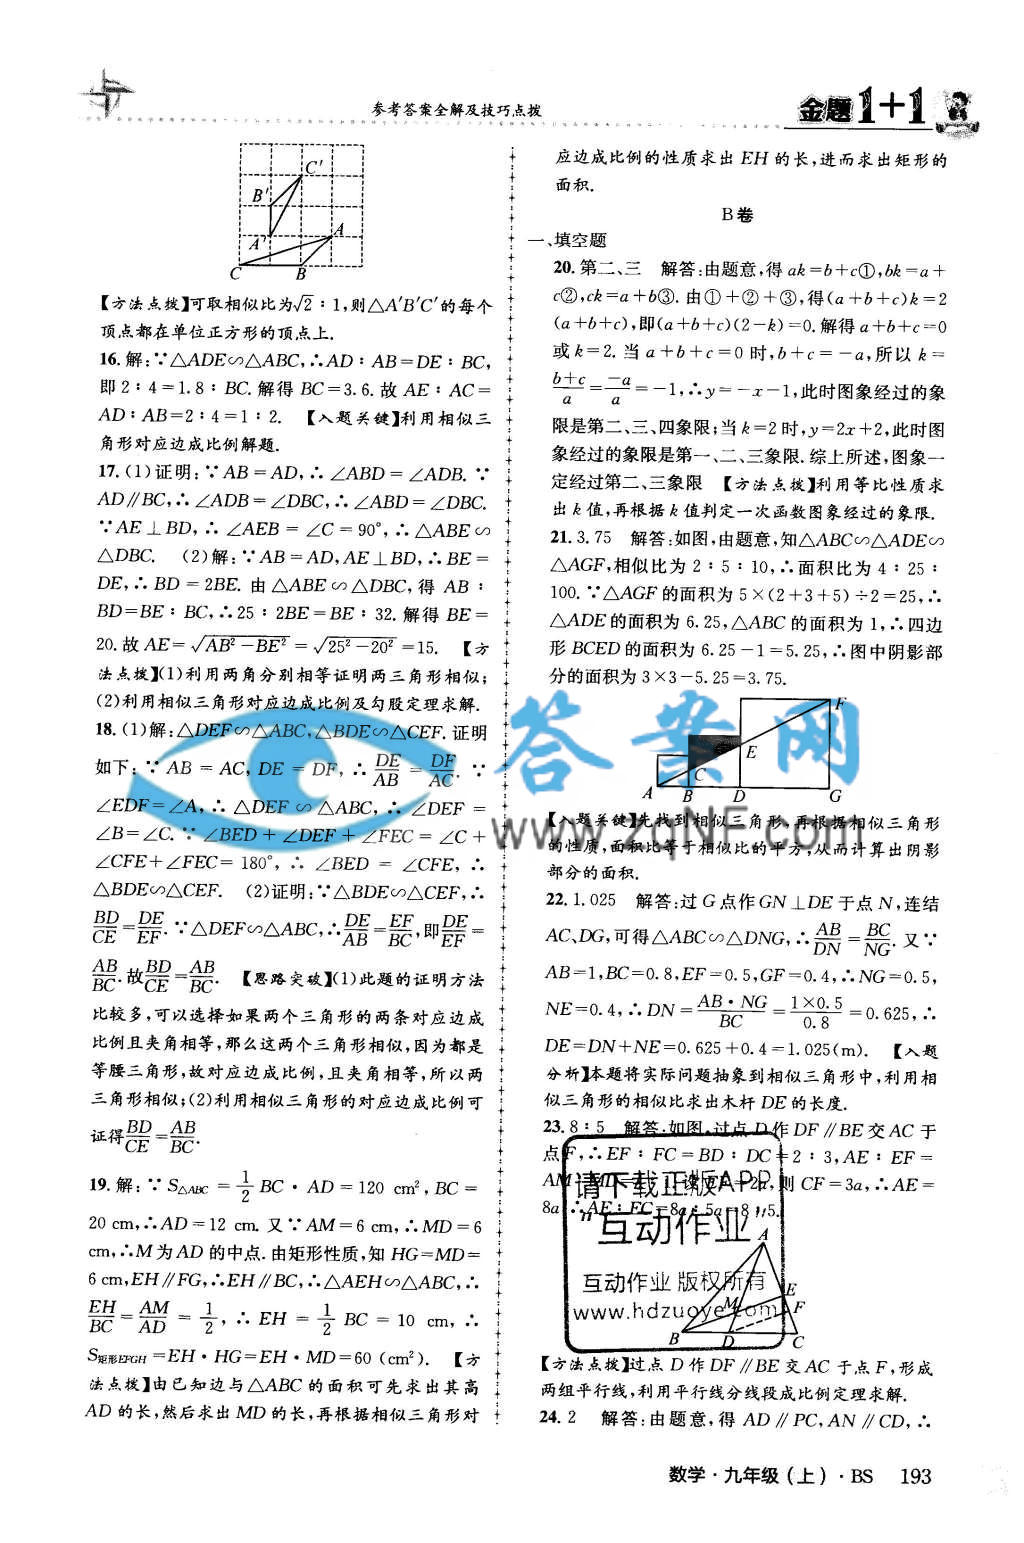 参考答案全解及技巧点拨
金题1+1
C′
B′
A′
A
C
B
【方法点拨】可取相似比为√2∶1,则△A′B′C′的每个
顶点都在单位正方形的顶点上.
16.解:∵△ADE∽△ABC,∴AD∶AB=DE∶BC,
即2∶4=1.8∶BC.解得BC=3.6.故AE∶AC=
AD∶AB=2∶4=1∶2. 【入题关键】利用相似三
角形对应边成比例解题.
17.(1)证明:∵AB=AD,∴∠ABD=∠ADB.∵
AD∥BC,∴∠ADB=∠DBC,∴∠ABD=∠DBC.
∵AE⊥BD,∴∠AEB=∠C=90°,∴△ABE∽
△DBC. (2)解:∵AB=AD,AE⊥BD,∴BE=
DE,∴BD=2BE.由△ABE∽△DBC,得AB∶
BD=BE∶BC,∴25∶2BE=BE∶32.解得BE=
20.故AE=√AB²-BE²=√25²-20²=15. 【方
法点拨】(1)利用两角分别相等证明两三角形相似;
(2)利用相似三角形对应边成比例及勾股定理求解.
18.(1)解:△DEF∽△ABC,△BDE∽△CEF.证明
如下:∵AB=AC,DE=DF,∴DE/AB=DF/AC.∵
∠EDF=∠A,∴△DEF∽△ABC,∴∠DEF=
∠B=∠C.∵∠BED+∠DEF+∠FEC=∠C+
∠CFE+∠FEC=180°,∴∠BED=∠CFE,∴
△BDE∽△CEF. (2)证明:∵△BDE∽△CEF,∴
BD/CE=DE/EF.∵△DEF∽△ABC,∴DE/AB=EF/BC,即DE/EF=
AB/BC.故BD/CE=AB/BC. 【思路突破】(1)此题的证明方法
比较多,可以选择如果两个三角形的两条对应边成
比例且夹角相等,那么这两个三角形相似,因为都是
等腰三角形,故对应边成比例,且夹角相等,所以两
三角形相似;(2)利用相似三角形的对应边成比例可
证得BD/CE=AB/BC.
19.解:∵S△ABC=1/2BC·AD=120 cm²,BC=
20 cm,∴AD=12 cm.又∵AM=6 cm,∴MD=6
cm,∴M为AD的中点.由矩形性质,知HG=MD=
6 cm,EH∥FG,∴EH∥BC,∴△AEH∽△ABC,∴
EH/BC=AM/AD=1/2,∴EH=1/2BC=10 cm,∴
S矩形EFGH=EH·HG=EH·MD=60(cm²). 【方
法点拨】由已知边与△ABC的面积可先求出其高
AD的长,然后求出MD的长,再根据相似三角形对
应边成比例的性质求出EH的长,进而求出矩形的
面积.
B卷
一、填空题
20.第二、三 解答:由题意,得ak=b+c①,bk=a+
c②,ck=a+b③.由①+②+③,得(a+b+c)k=2
(a+b+c),即(a+b+c)(2-k)=0.解得a+b+c=0
或k=2.当a+b+c=0时,b+c=-a,所以k=
b+c/a=-a/a=-1,∴y=-x-1,此时图象经过的象
限是第二、三、四象限;当k=2时,y=2x+2,此时图
象经过的象限是第一、二、三象限.综上所述,图象一
定经过第二、三象限 【方法点拨】利用等比性质求
出k值,再根据k值判定一次函数图象经过的象限.
21.3.75 解答:如图,由题意,知△ABC∽△ADE∽
△AGF,相似比为2∶5∶10,∴面积比为4∶25∶
100.∵△AGF的面积为5×(2+3+5)÷2=25,∴
△ADE的面积为6.25,△ABC的面积为1,∴四边
形BCED的面积为6.25-1=5.25,∴图中阴影部
分的面积为3×3-5.25=3.75.
F
E
C
A B D G
【入题关键】先找到相似三角形,再根据相似三角形
的性质,面积比等于相似比的平方,从而计算出阴影
部分的面积.
22.1.025 解答:过G点作GN⊥DE于点N,连结
AC、DG,可得△ABC∽△DNG,∴AB/DN=BC/NG.又∵
AB=1,BC=0.8,EF=0.5,GF=0.4,∴NG=0.5,
NE=0.4,∴DN=AB·NG/BC=1×0.5/0.8=0.625,∴
DE=DN+NE=0.625+0.4=1.025(m). 【入题
分析】本题将实际问题抽象到相似三角形中,利用相
似三角形的相似比求出木杆DE的长度.
23.8∶5 解答:如图,过点D作DF∥BE交AC于
点F,∴EF∶FC=BD∶DC=2∶3,AE∶EF=
则CF=3a,∴AE=
8a
A
E
M
F
B D C
【方法点拨】过点D作DF∥BE交AC于点F,形成
两组平行线,利用平行线分线段成比例定理求解.
24.2 解答:由题意,得AD∥PC,AN∥CD,∴
数学·九年级(上)·BS 193
答案网
www.zqNF.com
请下载正版APP
"互动作业"
互动作业 版权所有
www.hdzuoye.com